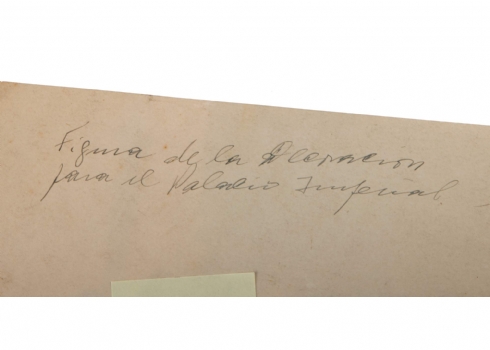 Figura de la Decoracion
para el Palacio Imperial.